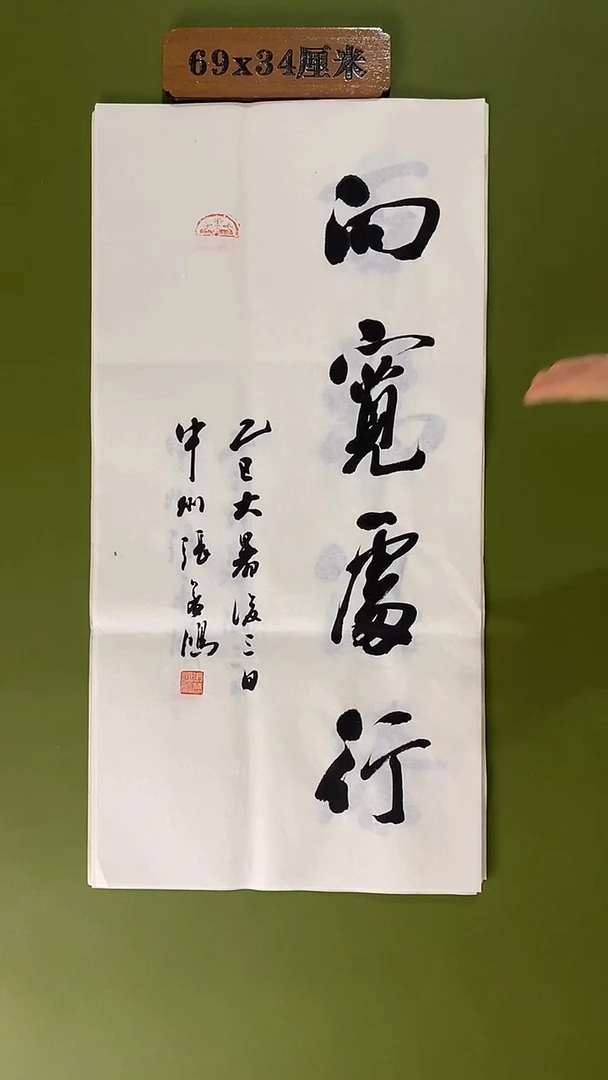 69x34厘米
向寬處行
乙巳大暑後三日
中州張為鴻